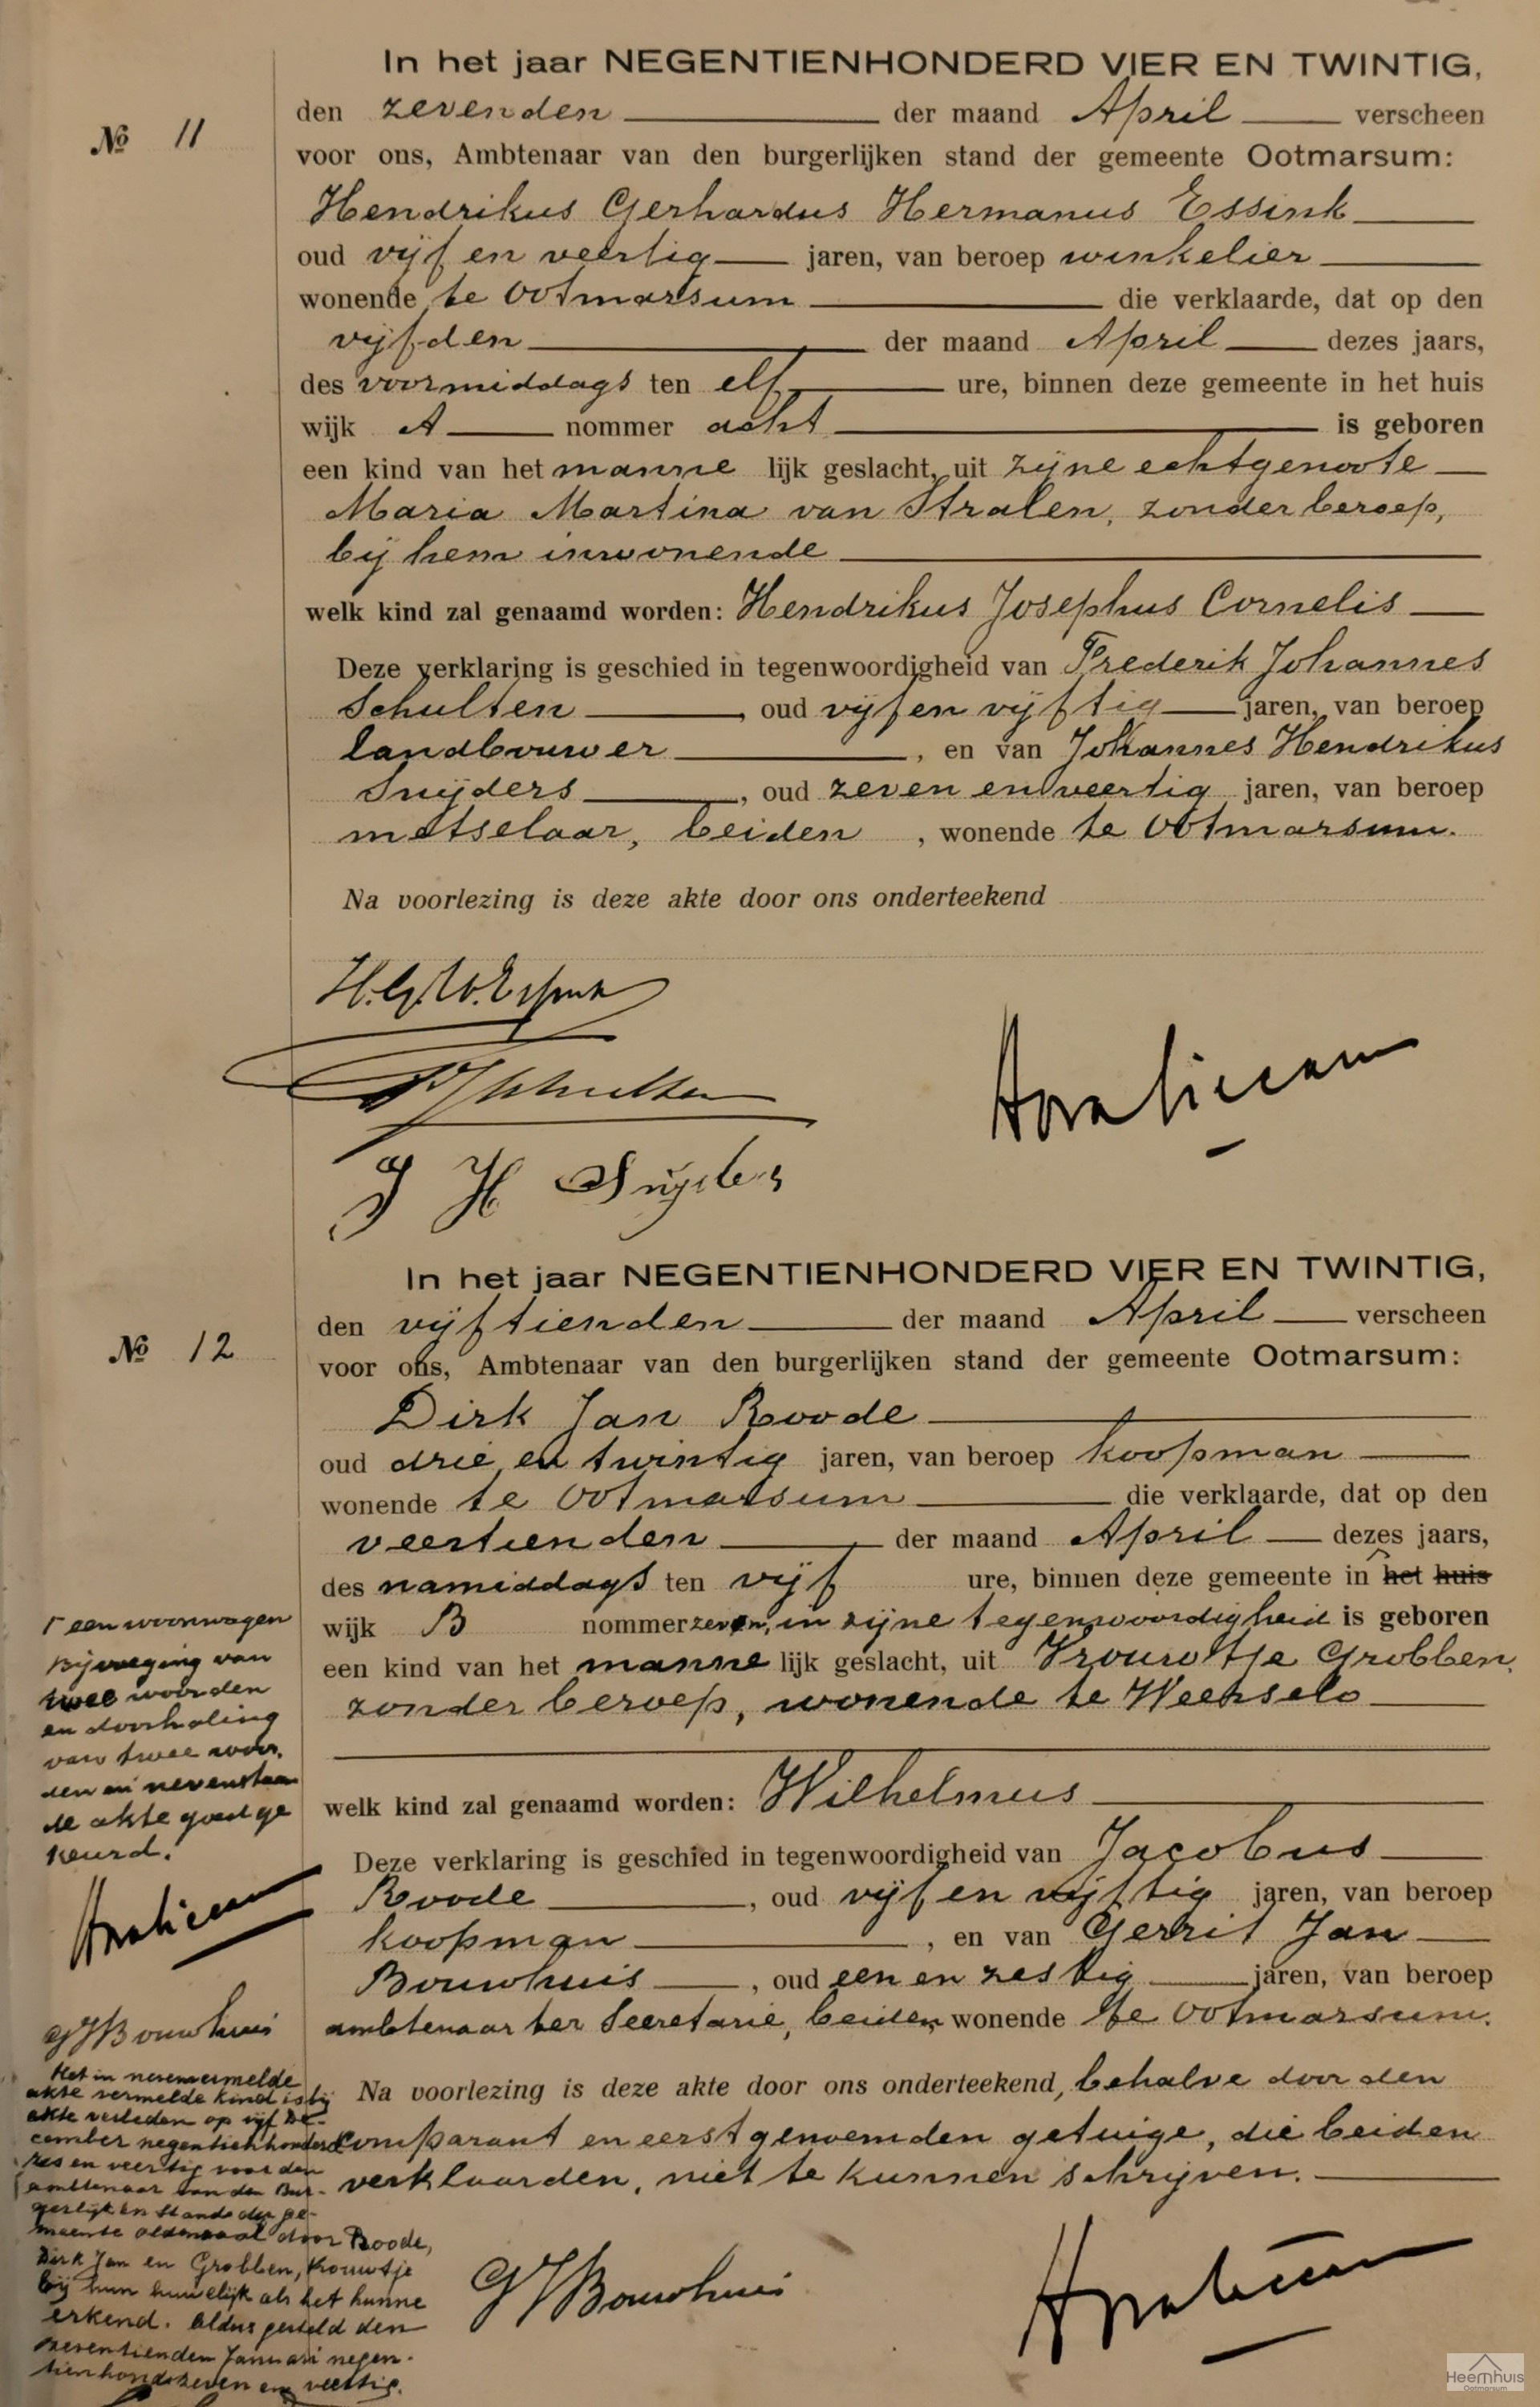 In het jaar NEGENTIENHONDERD VIER EN TWINTIG,
den zevenden der maand April verscheen
voor ons, Ambtenaar van den burgerlijken stand der gemeente Ootmarsum:
Hendrikus Gerhardus Hermanus Essink
oud vijf en veertig jaren, van beroep winkelier
wonende te Ootmarsum die verklaarde, dat op den
vijfden der maand April dezes jaars,
des voormiddags ten elf ure, binnen deze gemeente in het huis
wijk A nommer acht is geboren
een kind van het manne lijk geslacht, uit zijne echtgenoote
Maria Martina van Stralen, zonder beroep,
bij hem inwonende
welk kind zal genaamd worden: Hendrikus Josephus Cornelis
Deze verklaring is geschied in tegenwoordigheid van Frederik Johannes
Schulten, oud vijf en vijftig jaren, van beroep
landbouwer, en van Johannes Hendrikus
Snijders, oud zeven en veertig jaren, van beroep
metselaar, beiden, wonende te Ootmarsum.
Na voorlezing is deze akte door ons onderteekend
№ 11
H.G.H. Essink
FJ Schulten
J H Snijders
In het jaar NEGENTIENHONDERD VIER EN TWINTIG,
den vijftienden der maand April verscheen
voor ons, Ambtenaar van den burgerlijken stand der gemeente Ootmarsum:
Dirk Jan Roode
oud drie en twintig jaren, van beroep koopman
wonende te Ootmarsum die verklaarde, dat op den
veertienden der maand April dezes jaars,
des namiddags ten vijf ure, binnen deze gemeente in het huis
wijk B nommer zeven, in zijne tegenwoordigheid is geboren
een kind van het manne lijk geslacht, uit Vrouwtje Grobben,
zonder beroep, wonende te Weerselo
welk kind zal genaamd worden: Wilhelmus
Deze verklaring is geschied in tegenwoordigheid van Jacobus
Roode, oud vijf en vijftig jaren, van beroep
koopman, en van Gerrit Jan
Bouwhuis, oud een en zestig jaren, van beroep
ambtenaar ter Secretarie, beiden wonende te Ootmarsum.
Na voorlezing is deze akte door ons onderteekend, behalve door den
comparant en eerstgenoemden getuige, die beiden
verklaarden, niet te kunnen schrijven.
№ 12
een woonwagen
Bijvoeging van
twee woorden
en doorhaling
van twee woor-
den in nevenstaan
de akte goedge
keurd.
GJBouwhuis
Het in nevenvermelde
akte vermelde kind is bij
akte verleden op vijf De-
cember negentienhonderd
zes en veertig voor den
ambtenaar van den Bur-
gerlijken Stand der ge-
meente Oldenzaal door Roode,
Dirk Jan en Grobben, Vrouwtje
bij hun huwelijk als het hunne
erkend. Aldus gesteld den
zeventienden Januari negen-
tienhondzeven en veertig.
GJBouwhuis
Heemhuis
Ootmarsum